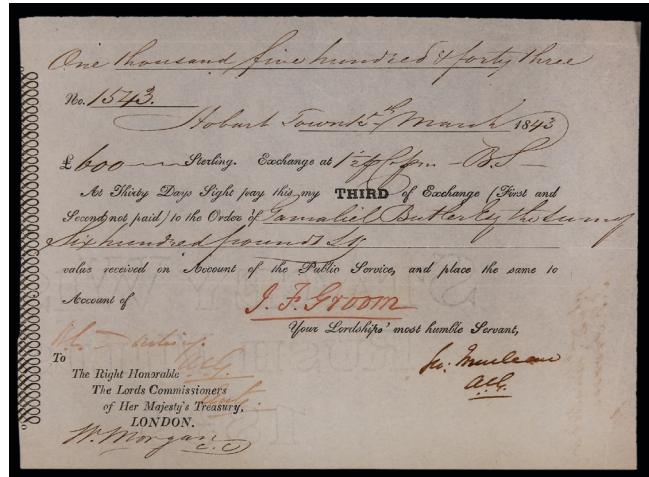 One thousand five hundred & forty three
No. 1543.
Hobart Town 5th March 1843
£ 600 Sterling. Exchange at 1½ p Ct pm - B.S -
At Thirty Days Sight pay this my THIRD of Exchange (First and
Second not paid) to the Order of Gamaliel Butler Esq the sum of
Six hundred pounds Stg
value received on Account of the Public Service, and place the same to
Account of J. F. Groom
Your Lordships' most humble Servant,
To
The Right Honorable
The Lords Commissioners
of Her Majesty's Treasury,
LONDON.
A.C.G.
W. Morgan